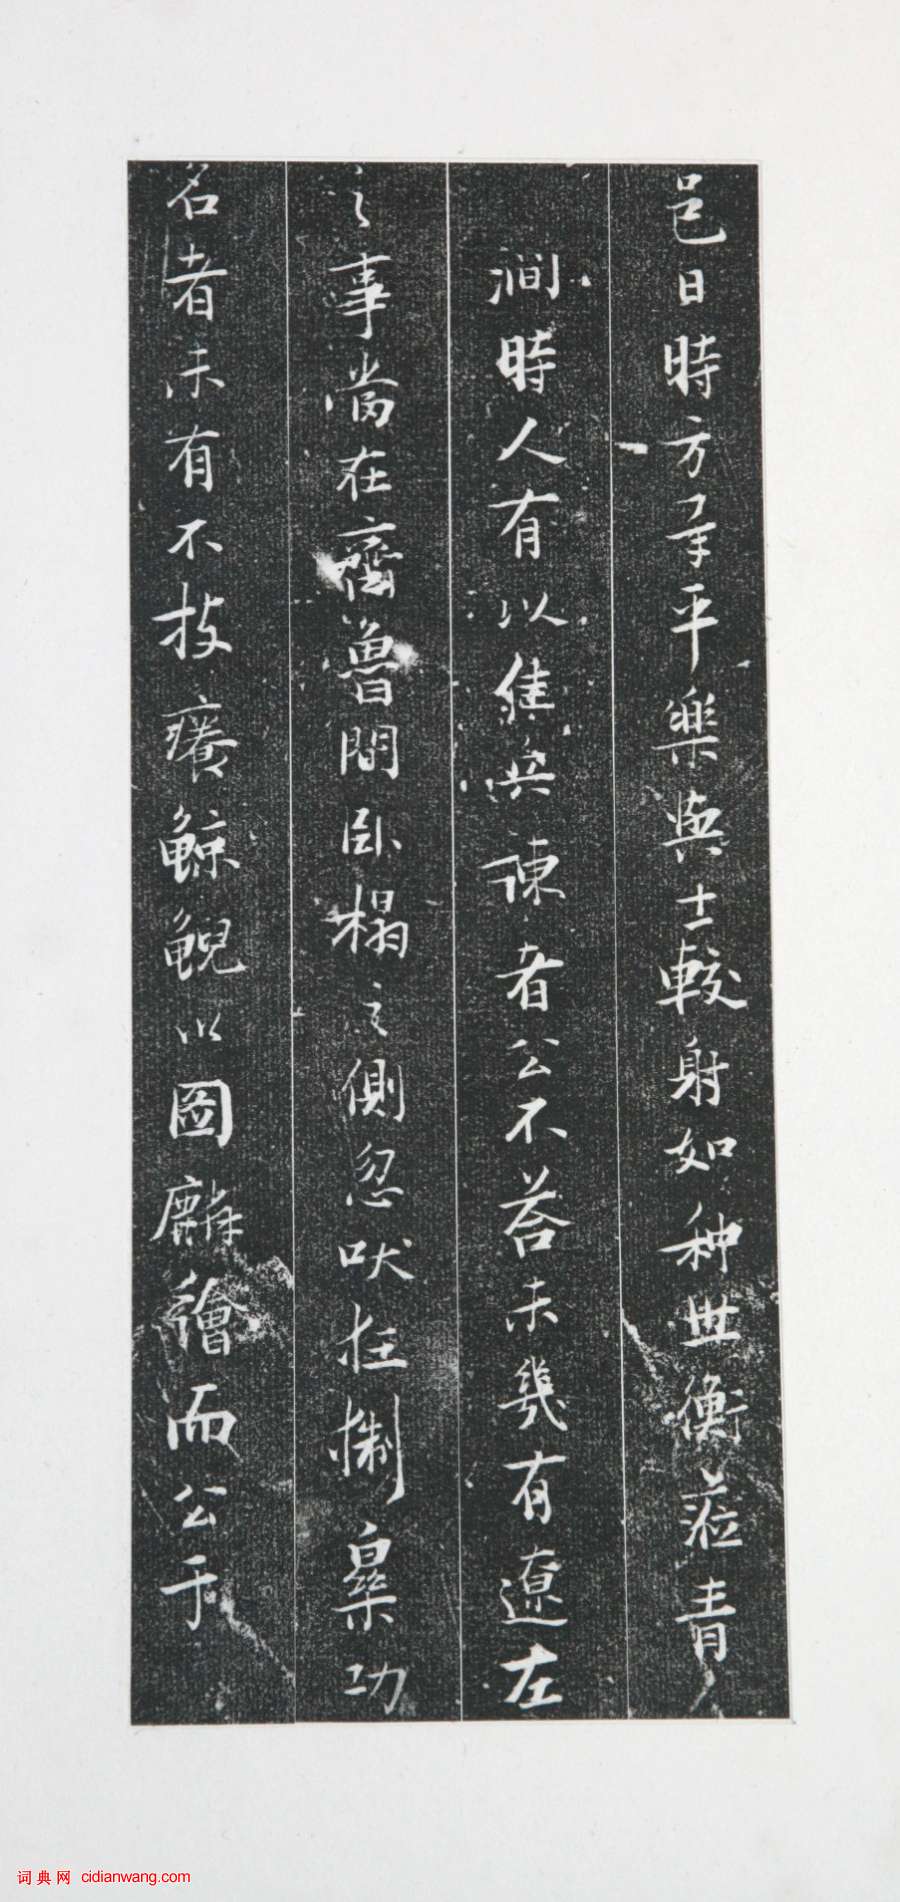 邑日時方宰平樂與士較射如种世衡蒞青
澗時人有以佳兵諫者公不荅未幾有遼左
之事當在齊魯間臥榻之側忽吠狂猘臬功
名者未有不技癢鯨鯢以圖麟繪而公于
词典网 cidianwang.com